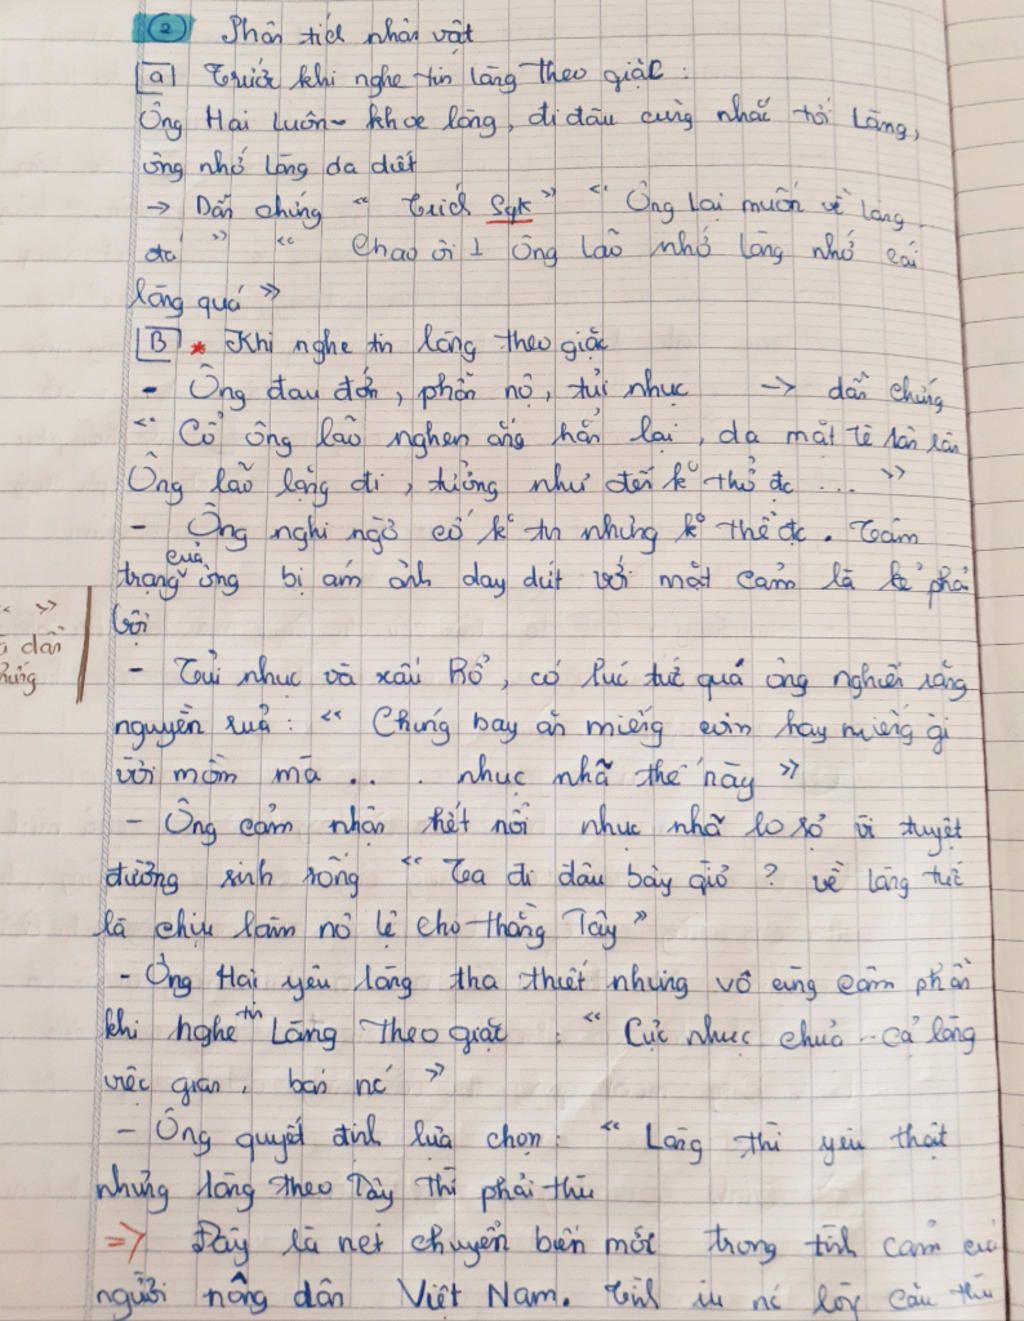 ② Phân tích nhân vật
a Trước khi nghe tin làng theo giặc :
Ông Hai luôn khoe làng, đi đâu cũng nhắc tới làng,
ông nhớ làng da diết
→ Dẫn chứng " trích Sgk " " Ông lại muốn về làng
" " Chao ôi ! Ông lão nhớ làng nhớ cái
làng quá "
B * Khi nghe tin làng theo giặc
- Ông đau đớn, phẫn nộ, tủi nhục → dẫn chứng
" Cổ ông lão nghẹn ắng hẳn lại, da mặt tê rân rân
Ông lão lặng đi, tưởng như đến k° thở đc ... "
- Ông nghi ngờ cố k° tin nhưng k° thể đc. Tâm
trạng của ông bị ám ảnh day dứt với mặc cảm là kẻ phản
bội
dẫn
chứng
- Tủi nhục và xấu hổ, có lúc tức quá ông nghiến răng
nguyền rủa : " Chúng bay ăn miếng cơm hay miếng gì
vào mồm mà ... nhục nhã thế này "
- Ông cảm nhận hết nỗi nhục nhã lo sợ vì tuyệt
đường sinh sống " Toa đi đâu bây giờ ? về làng tức
là chịu làm nô lệ cho thằng Tây "
- Ông Hai yêu làng tha thiết nhưng vô cùng căm phẫn
khi nghe tin Làng theo giặc : " Cực nhục chưa cả làng
việc gian, bán nc "
- Ông quyết định lựa chọn : " Làng thì yêu thật
nhưng làng theo Tây thì phải thù
=> Đây là nét chuyển biến mới trong tình cảm của
người nông dân Việt Nam. Tình nc lòng căm thù